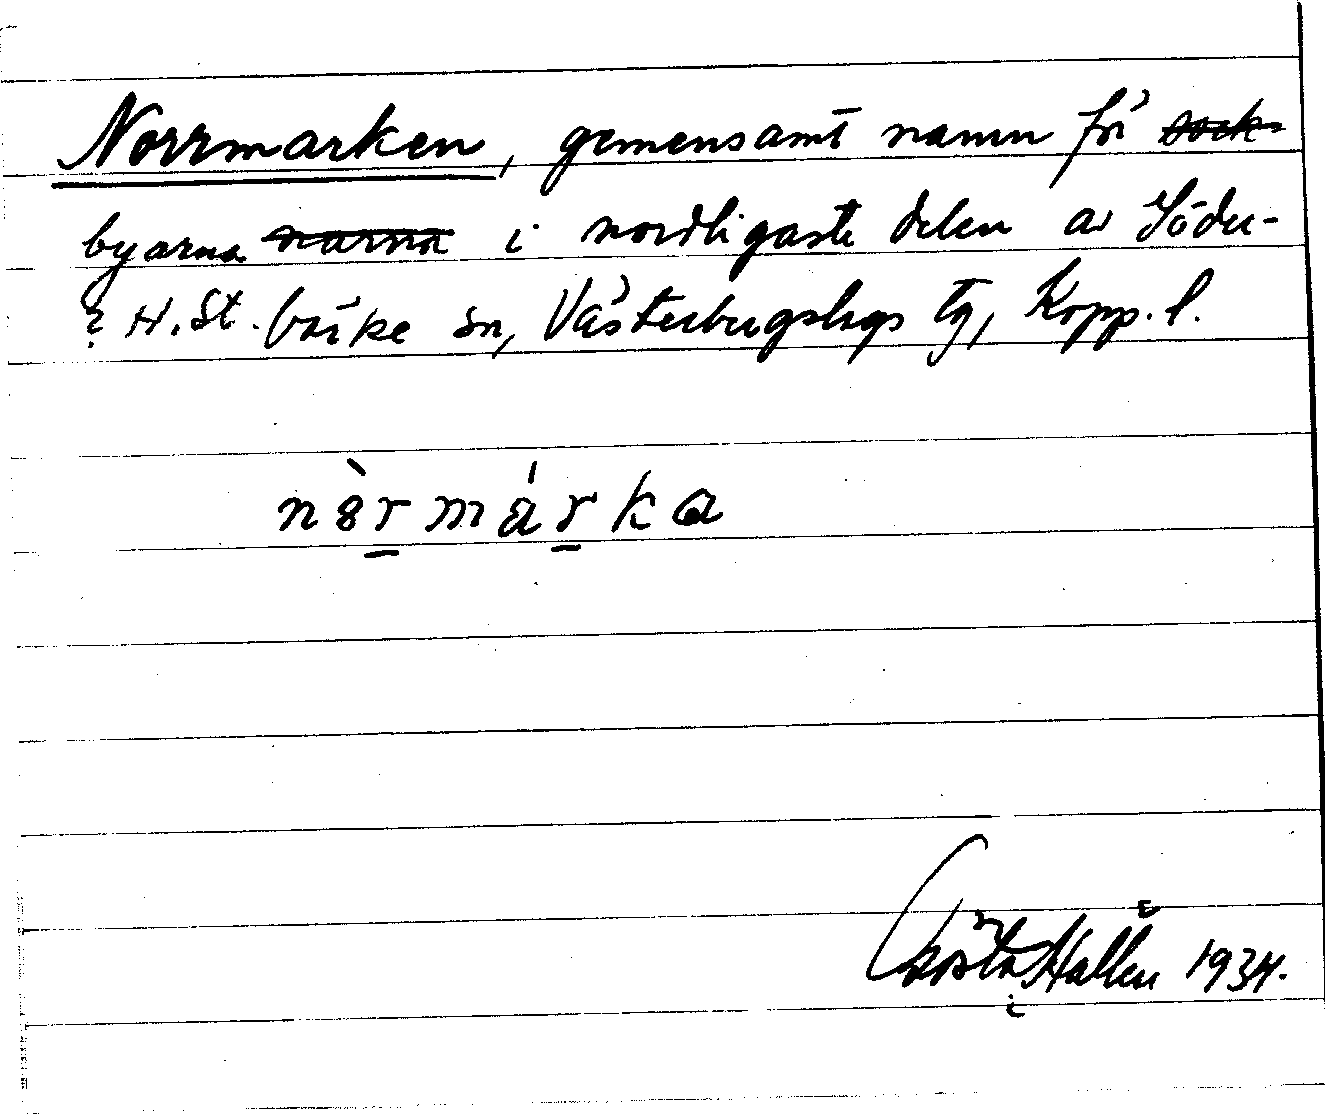 Norrmarken, gemensamt namn för sock-
byarna narna i nordligaste delen av Söder-
? H. St. bärke sn, Västerbergslags tg, Kopp. l.
nòrmárka
Gösta Hallén 1934.